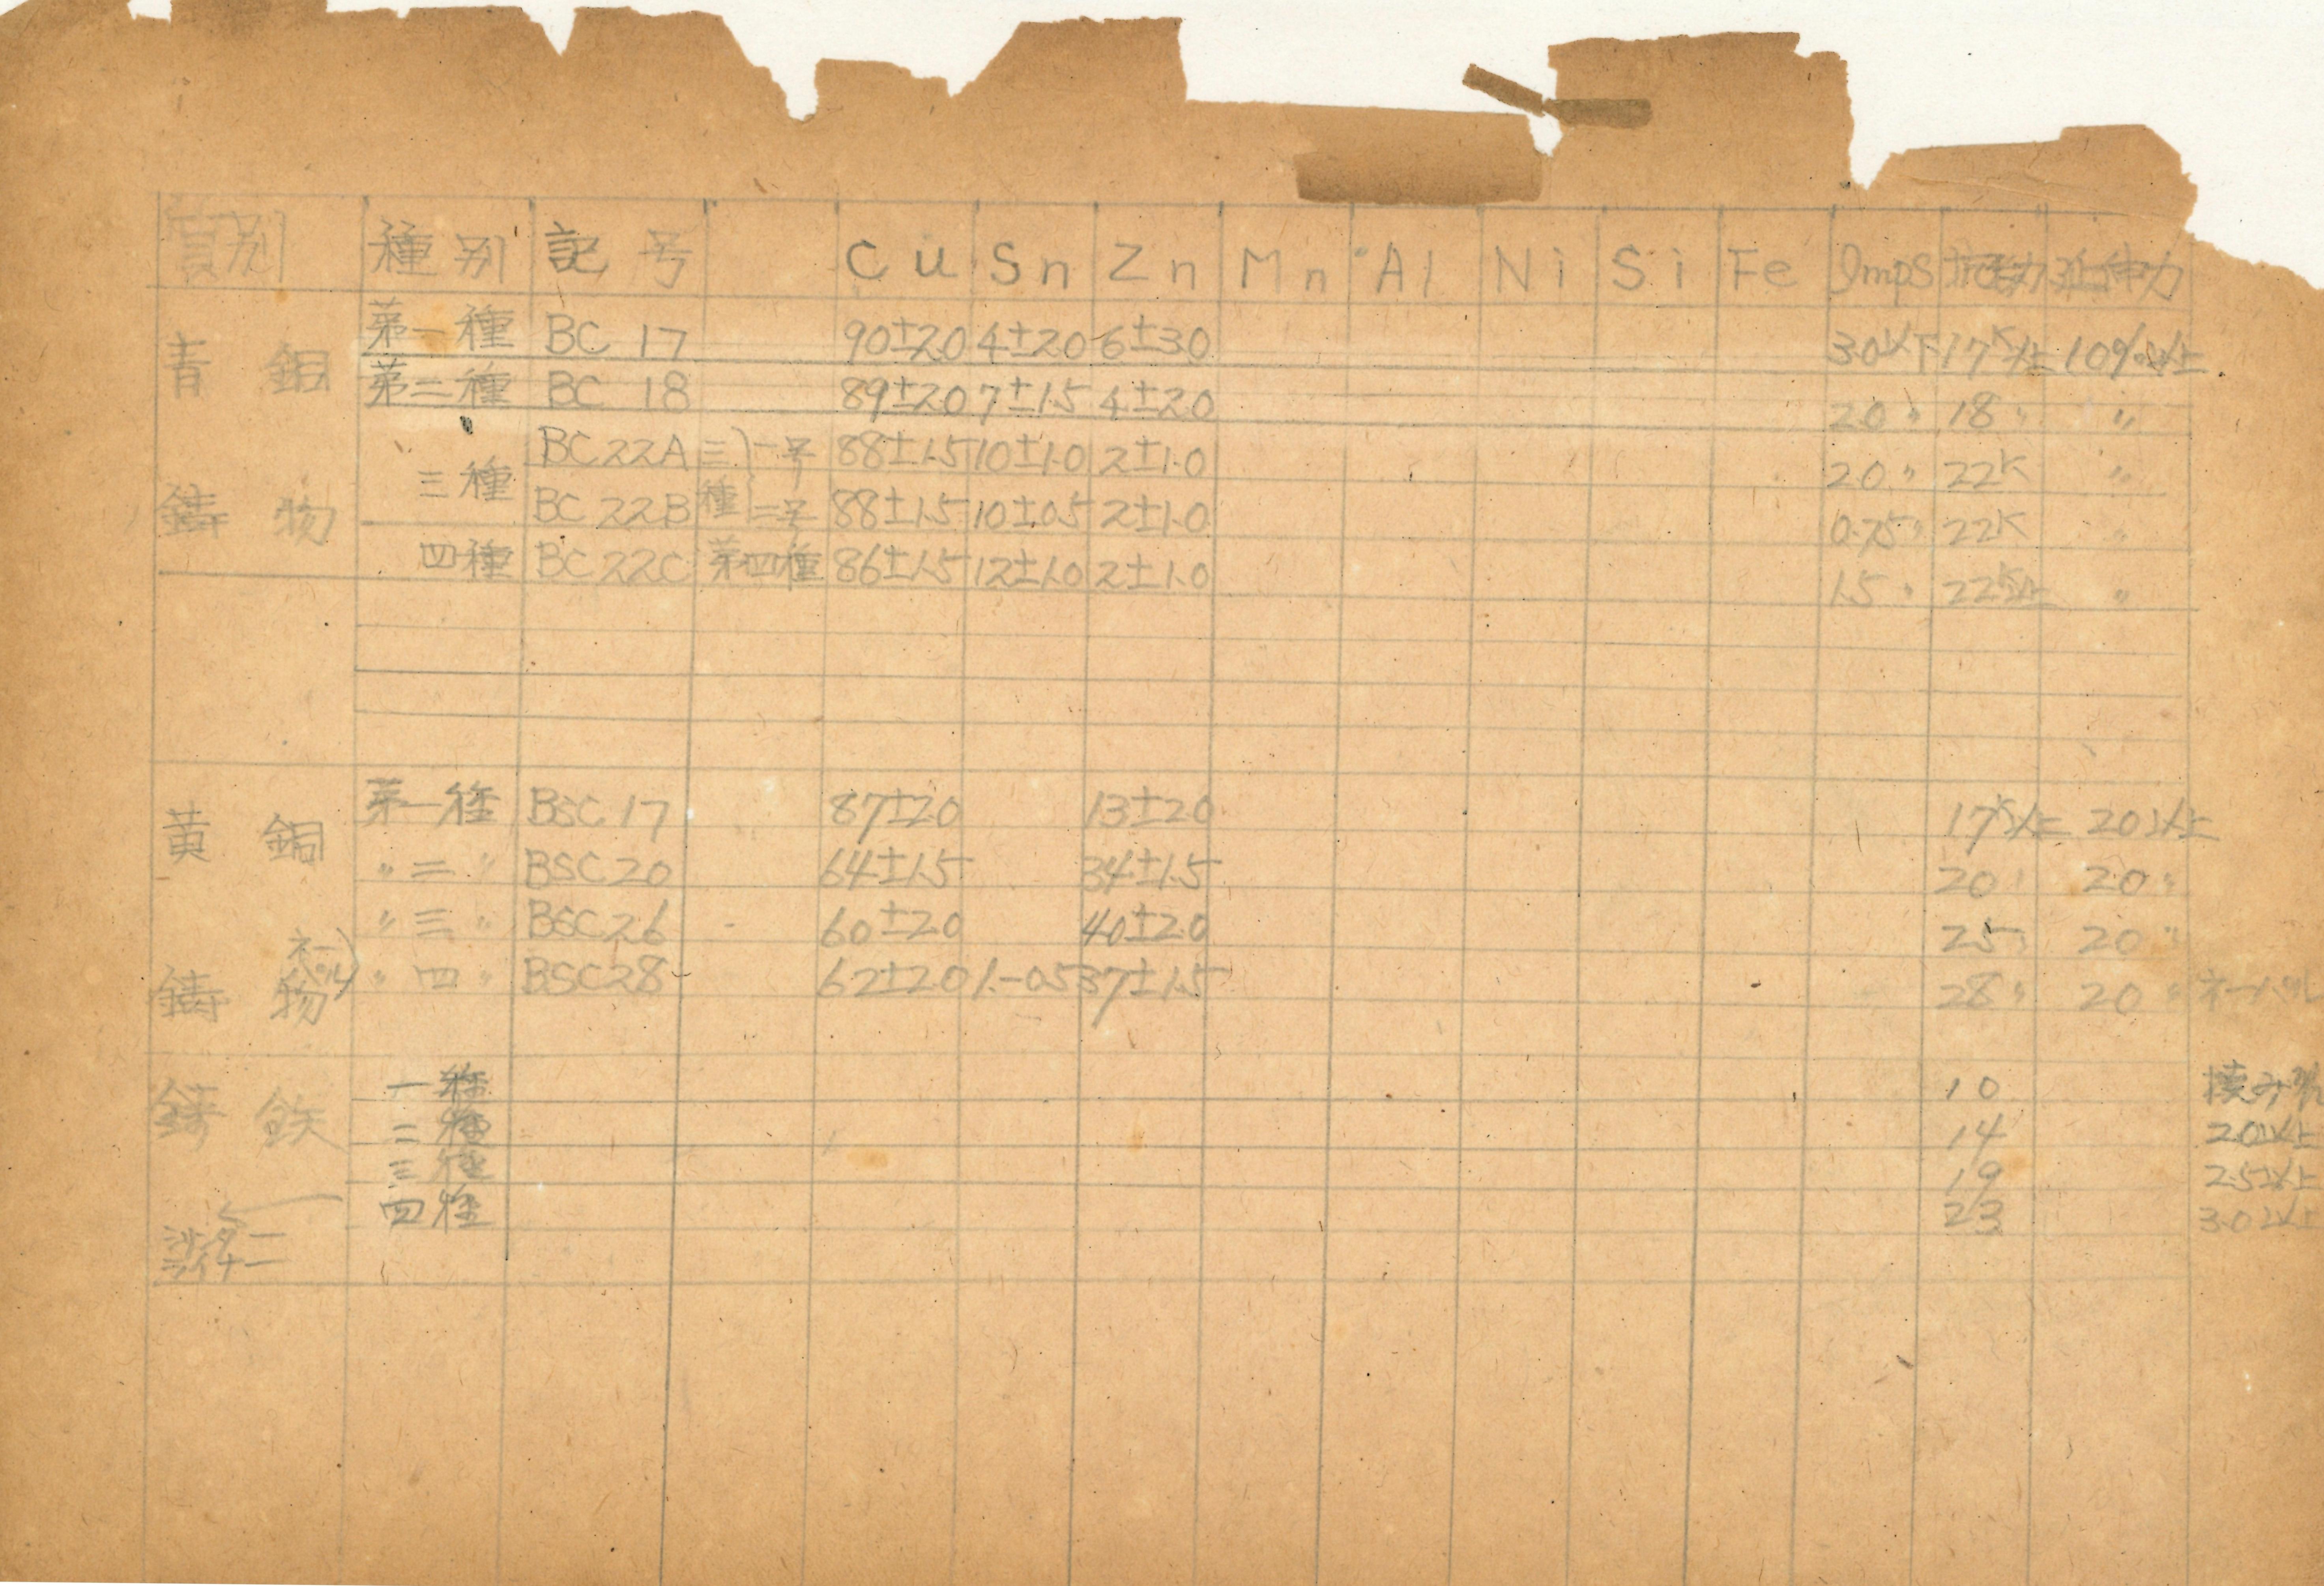 質別 種別 記号 Cu Sn Zn Mn Al Ni Si Fe Imps 抗張力 延伸力
青銅鋳物 第一種 BC 17 90±2.0 4±2.0 6±3.0 3.0以下 17K以上 10%以上
第二種 BC 18 89±2.0 7±1.5 4±2.0 2.0〃 18〃 〃
三種 BC 22A 三種 一号 88±1.5 10±1.0 2±1.0 2.0〃 22K 〃
BC 22B 二号 88±1.5 10±0.5 2±1.0 0.75〃 22K 〃
四種 BC 22C 第四種 86±1.5 12±1.0 2±1.0 1.5〃 22K以上 〃
黄銅鋳物 第一種 BSC 17 87±2.0 13±2.0 17K以上 20以上
〃二〃 BSC 20 64±1.5 34±1.5 20〃 20〃
〃三〃 BSC 26 60±2.0 40±2.0 25〃 20〃
ネーバル) 〃四〃 BSC 28 62±2.0 1.-0.5 37±1.5 28〃 20〃 ネーバル
鋳鉄 一種 10
二種 14 2.0以上
三種 19 2.5以上
四種 23 3.0以上